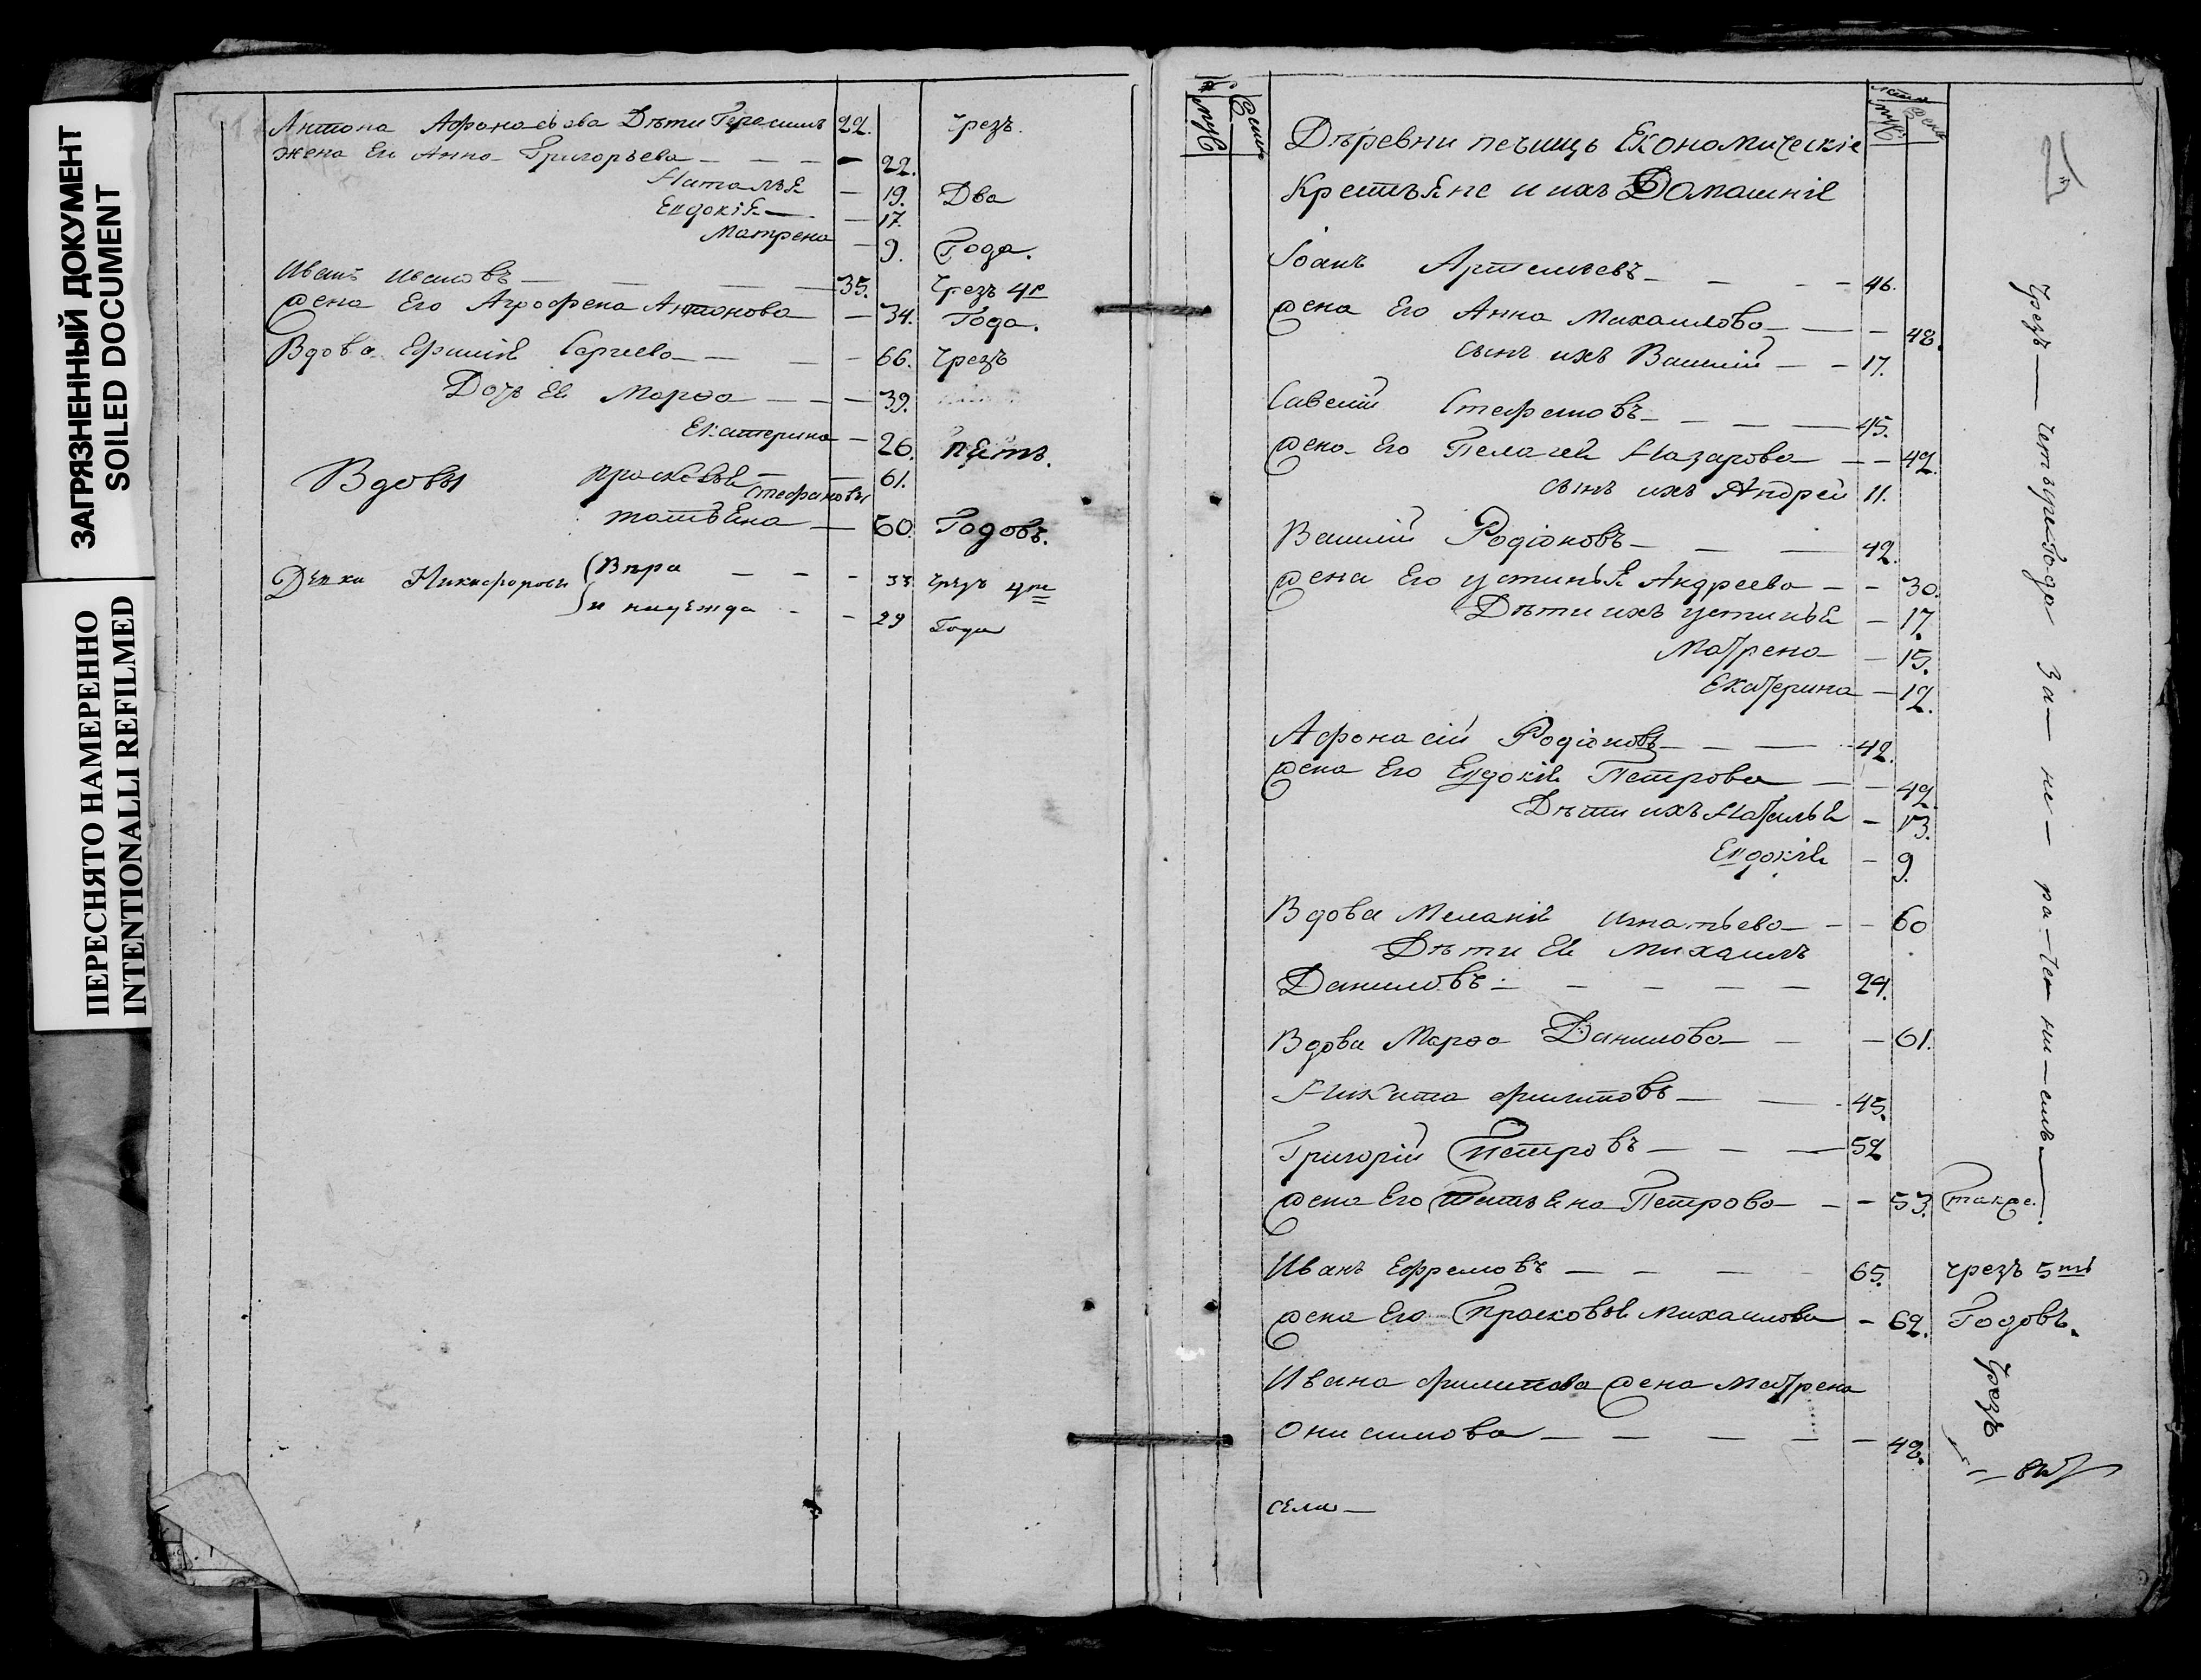 ЗАГРЯЗНЕННЫЙ ДОКУМЕНТ
SOILED DOCUMENT
ПЕРЕСНЯТО НАМЕРЕННО
INTENTIONALLI REFILMED
Антона Афонасьева Дѣти Герасимъ 22. чрезъ
жена Ег Анна Григорьева — — — 22.
Наталья — 19. Два
Евдокія — 17.
Матрена — 9. Года.
Иванъ Ивановъ — — — 35. Чрезъ 4ре
жена Его Агрофена Антонова — 34. Года.
Вдова Сергиева — — — 66. чрезъ
Дочь Ея Марѳа — — — 39.
Екатерина — 26. пять.
Вдовы просковья — — 61.
Стефановы
татьяна — 60. Годовъ.
Дѣвки Никифоровы Вѣра — — — 33 чрезъ 4ре
и надежда — — 29 Года
лѣта
Муж
Жен
Деревни печищь Економическіе
Крестьяне и ихъ Домашніе
Іоанъ Артемьевъ — — — — 46.
жена Его Анна Михаилова — — — 48.
сынъ ихъ Василій — — 17.
Савелій Стефановъ — — — — 45.
жена Его Пелагея Назарова — — 42.
сынъ ихъ Андрей 11.
Василий Родіоновъ — — — 42.
жена Его устинья Андреева — — 30.
Дѣти ихъ устинья — 17.
Матрена — 15.
Екатерина — 12.
Афонасій Родіоновъ — — — 42.
жена Его Евдокія Петрова — — 42.
Дѣти ихъ Наталья — 13.
Евдокія — 9.
Вдова Меланія Игнатьева — — 60
Дѣти Ея Михаилъ
Даниловъ — — — — — 24.
Вдова Марѳа Данилова — — 61.
Никита филиповъ — — — 45.
Григорій Петровъ — — — 52
жена Его татьяна Петрова — — 53. также.
Иванъ Ефремовъ — — — — 65. чрезъ 5ть
жена Его Просковья Михаилова — 62. Годовъ.
Ивана филипова жена матрена
Онисимова — — — — — 42.
села —
Чрезъ — четыре Года За — не — ра — че — ни — емъ
Чрезъ